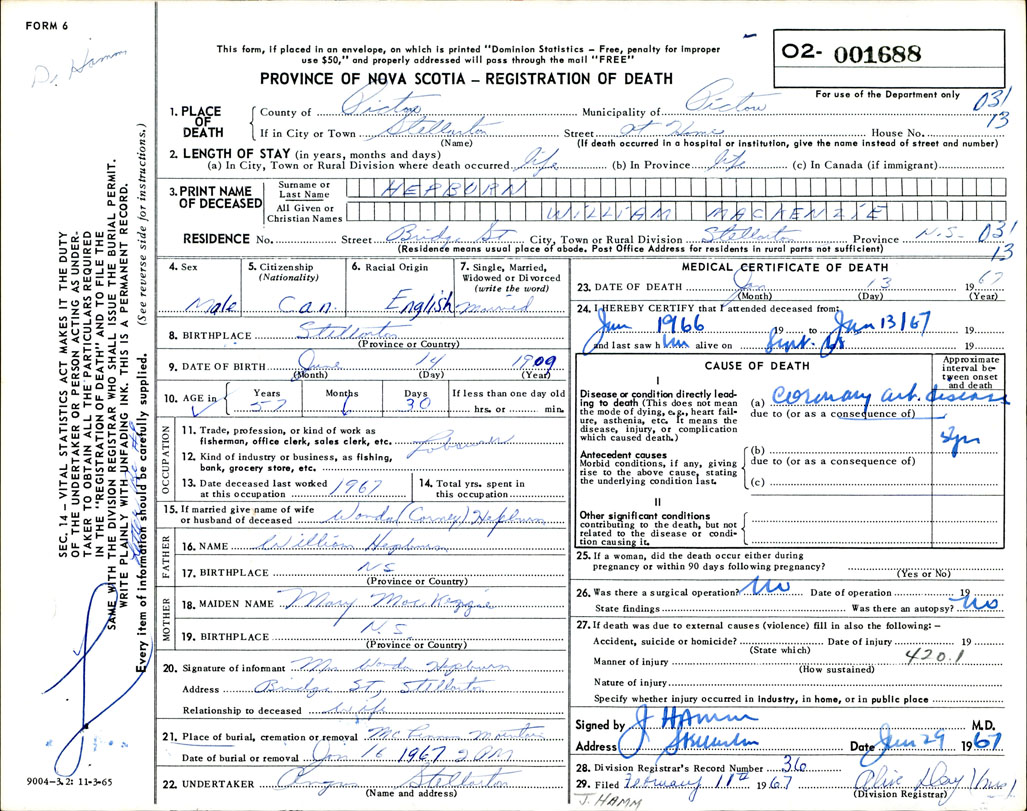 FORM 6
Dr Hamm
This form, if placed in an envelope, on which is printed "Dominion Statistics – Free, penalty for improper
use $50," and properly addressed will pass through the mail "FREE"
PROVINCE OF NOVA SCOTIA – REGISTRATION OF DEATH
O2- 001688
For use of the Department only
031
13
1. PLACE OF DEATH
County of Pictou Municipality of Pictou
If in City or Town Stellarton Street at Home House No.
(Name) (If death occurred in a hospital or institution, give the name instead of street and number)
2. LENGTH OF STAY (in years, months and days)
(a) In City, Town or Rural Division where death occurred life (b) In Province life (c) In Canada (if immigrant)
3. PRINT NAME OF DECEASED
Surname or Last Name HEPBURN
All Given or Christian Names WILLIAM MACKENZIE
RESIDENCE No. Street Bridge St City, Town or Rural Division Stellarton Province N.S. 031
(Residence means usual place of abode. Post Office Address for residents in rural parts not sufficient) 13
4. Sex Male
5. Citizenship (Nationality) Can.
6. Racial Origin English
7. Single, Married, Widowed or Divorced (write the word) Married
8. BIRTHPLACE Stellarton
(Province or Country)
9. DATE OF BIRTH June 14 1909
(Month) (Day) (Year)
10. AGE in Years 57 Months 6 Days 30 If less than one day old hrs. or min.
OCCUPATION
11. Trade, profession, or kind of work as
fisherman, office clerk, sales clerk, etc.
12. Kind of industry or business, as fishing,
bank, grocery store, etc.
13. Date deceased last worked at this occupation 1967
14. Total yrs. spent in this occupation
15. If married give name of wife
or husband of deceased Wonda Hepburn
FATHER
16. NAME William Hepburn
17. BIRTHPLACE NS
(Province or Country)
MOTHER
18. MAIDEN NAME Mary
19. BIRTHPLACE N.S.
(Province or Country)
20. Signature of informant Mrs Wonda Hepburn
Address Bridge St, Stellarton
Relationship to deceased Wife
21. Place of burial, cremation or removal
Date of burial or removal Jan 16 1967
22. UNDERTAKER Stellarton
(Name and address)
MEDICAL CERTIFICATE OF DEATH
23. DATE OF DEATH Jan 13 1967
(Month) (Day) (Year)
24. I HEREBY CERTIFY that I attended deceased from:
1966 19 to Jan 13/67 19
and last saw him alive on Sept. 19
CAUSE OF DEATH
Approximate interval between onset and death
I
Disease or condition directly leading to death (This does not mean the mode of dying, e.g., heart failure, asthenia, etc. It means the disease, injury, or complication which caused death.)
(a) Coronary art. disease
due to (or as a consequence of)
Antecedent causes
Morbid conditions, if any, giving rise to the above cause, stating the underlying condition last.
(b)
due to (or as a consequence of)
(c)
II
Other significant conditions
contributing to the death, but not related to the disease or condition causing it.
25. If a woman, did the death occur either during
pregnancy or within 90 days following pregnancy?
(Yes or No)
26. Was there a surgical operation? No Date of operation 19
State findings Was there an autopsy? No
27. If death was due to external causes (violence) fill in also the following: –
Accident, suicide or homicide? Date of injury 19
(State which) 420.1
Manner of injury
(How sustained)
Nature of injury
Specify whether injury occurred in Industry, in home, or in public place
Signed by J HAMM M.D.
Address Stellarton Date Jan 29 1967
28. Division Registrar's Record Number 36
29. Filed February 11th 1967
(Division Registrar)
J. HAMM
SEC. 14 – VITAL STATISTICS ACT MAKES IT THE DUTY
OF THE UNDERTAKER OR PERSON ACTING AS UNDER-
TAKER TO OBTAIN ALL THE PARTICULARS REQUIRED
IN THE "REGISTRATION OF DEATH" AND TO FILE THE
SAME WITH THE DIVISION REGISTRAR WHO SHALL ISSUE THE BURIAL PERMIT.
WRITE PLAINLY WITH UNFADING INK. THIS IS A PERMANENT RECORD.
Every item of information should be carefully supplied. (See reverse side for instructions.)
9004-3.2: 11-3-65